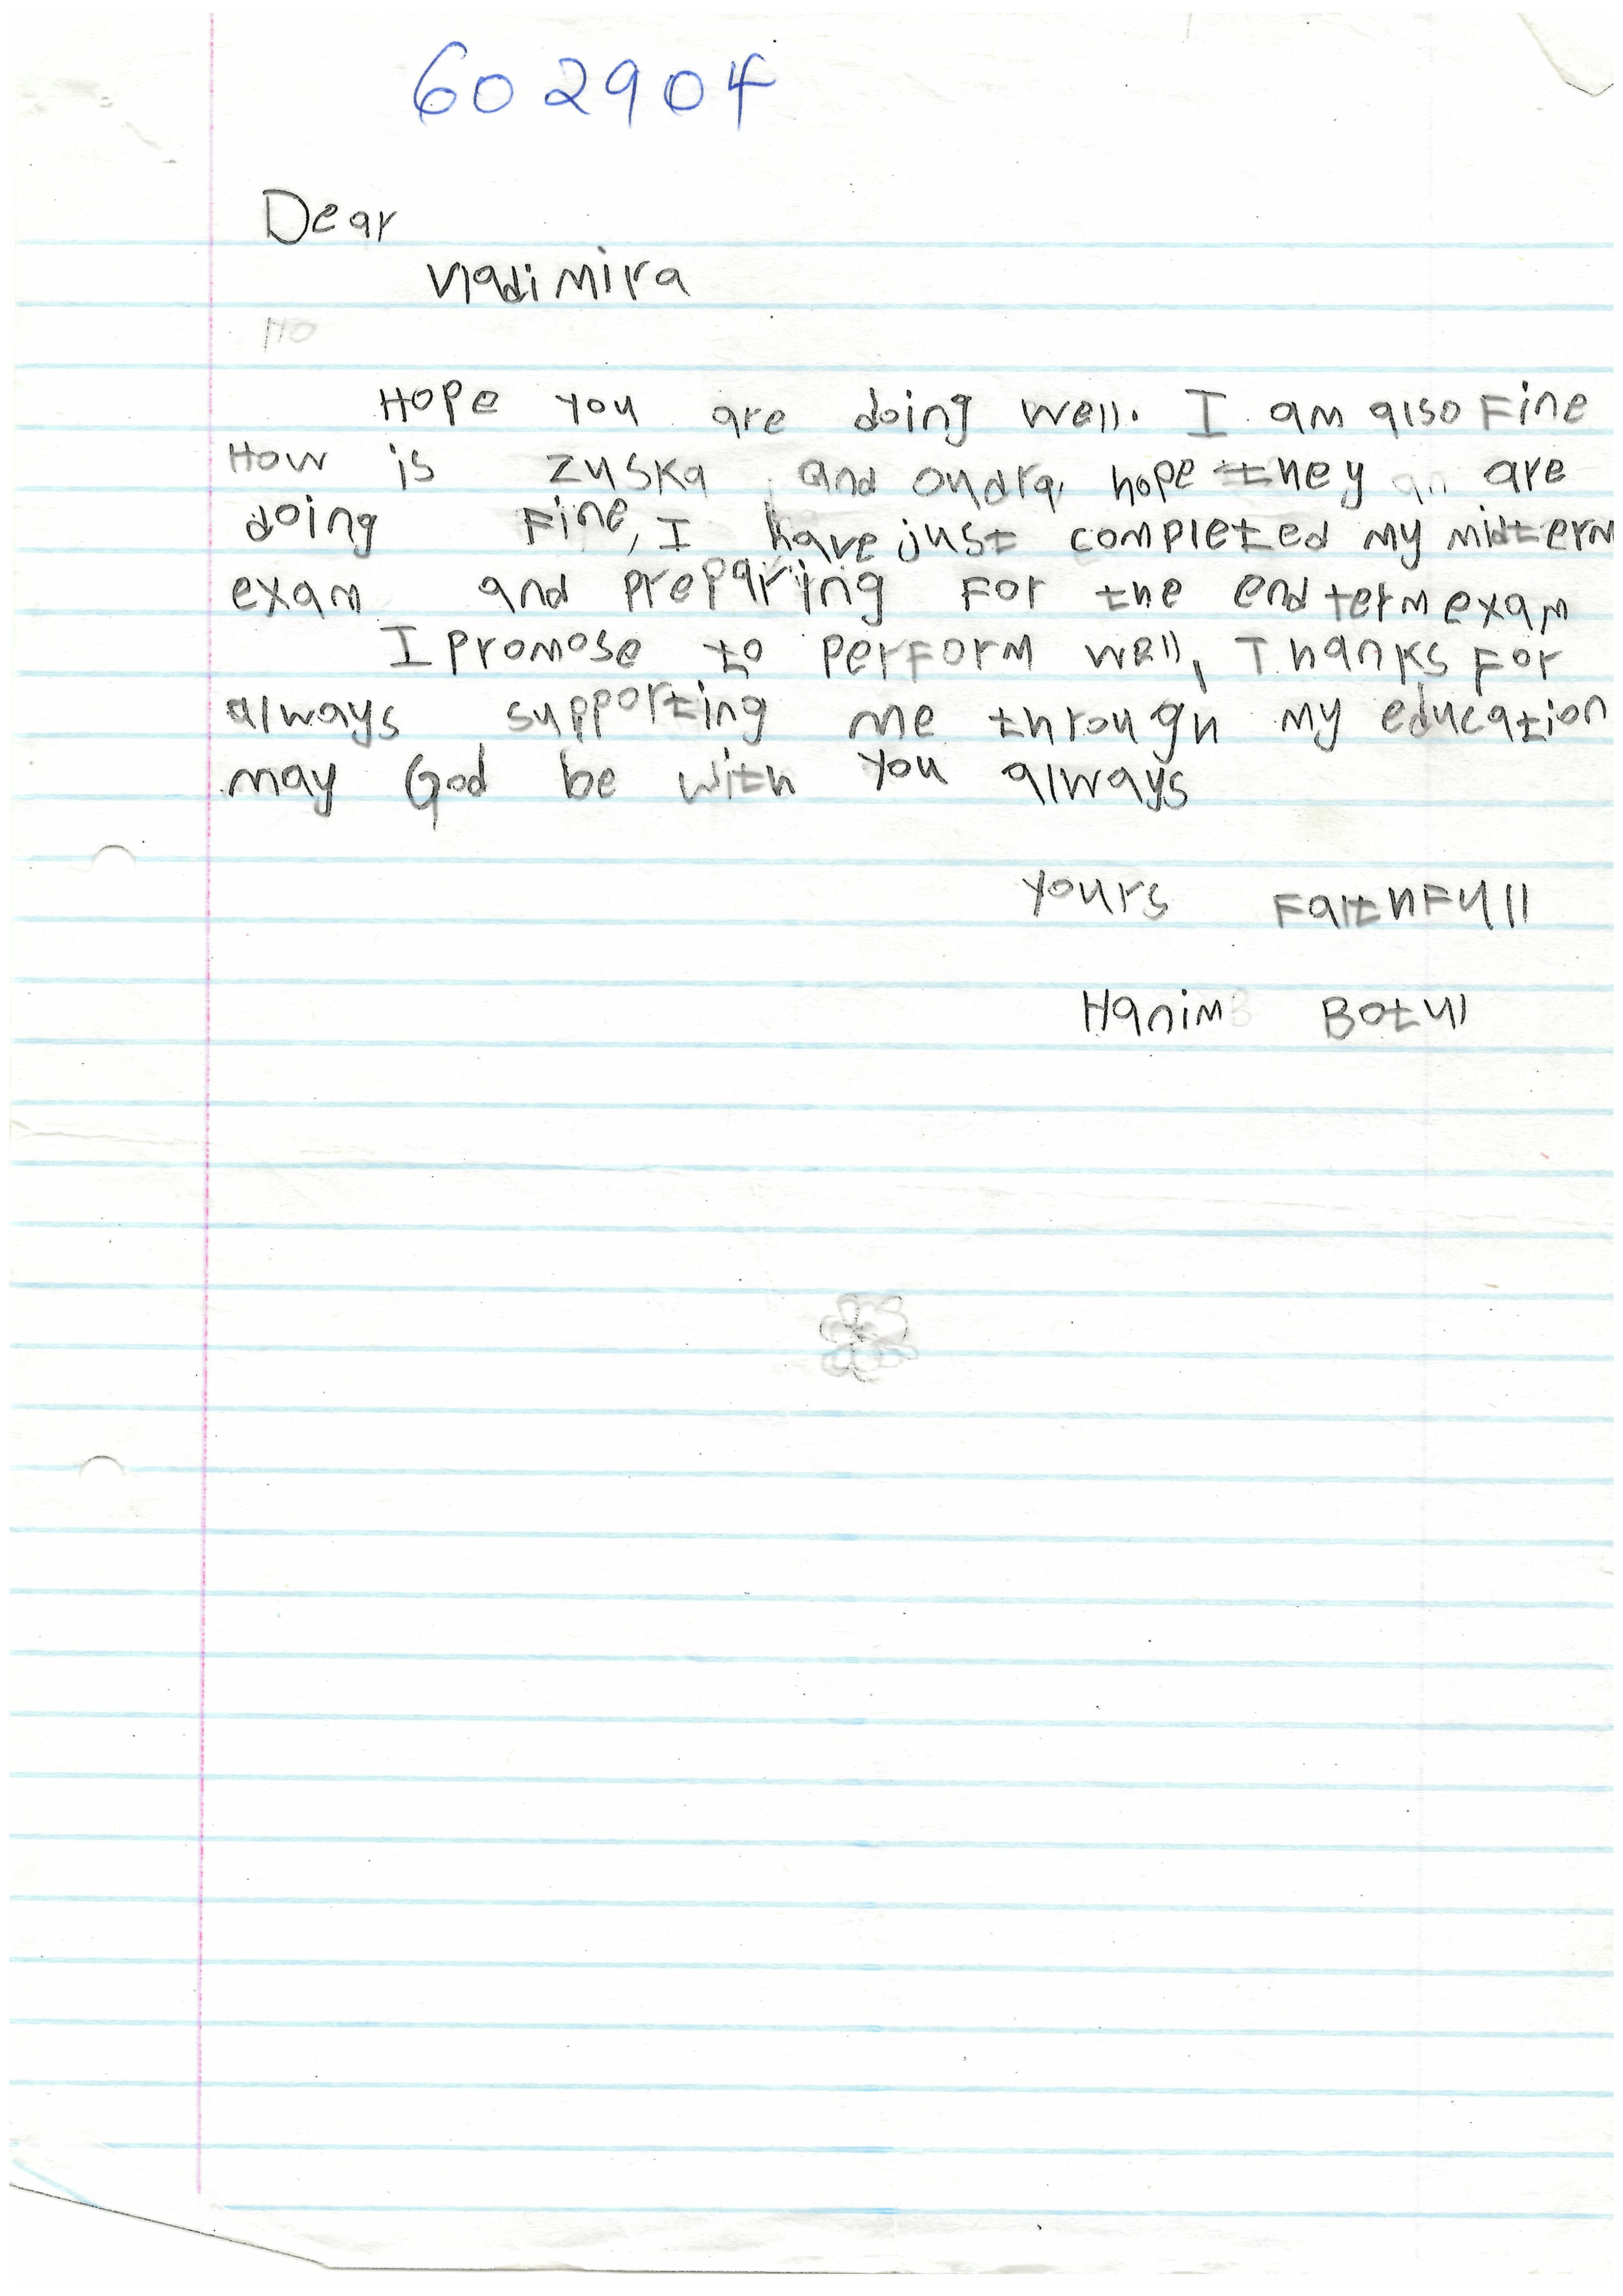 602904
Dear
Vladimira
Hope you are doing well. I am also Fine
How is zuska and ondra, hope they are
doing Fine, I have just completed my midterm
exam and preparing For the end term exam
I promose to perForm well, Thanks For
always supporting me through my education
may God be with you always
Yours FaithFull
Hanim Botul